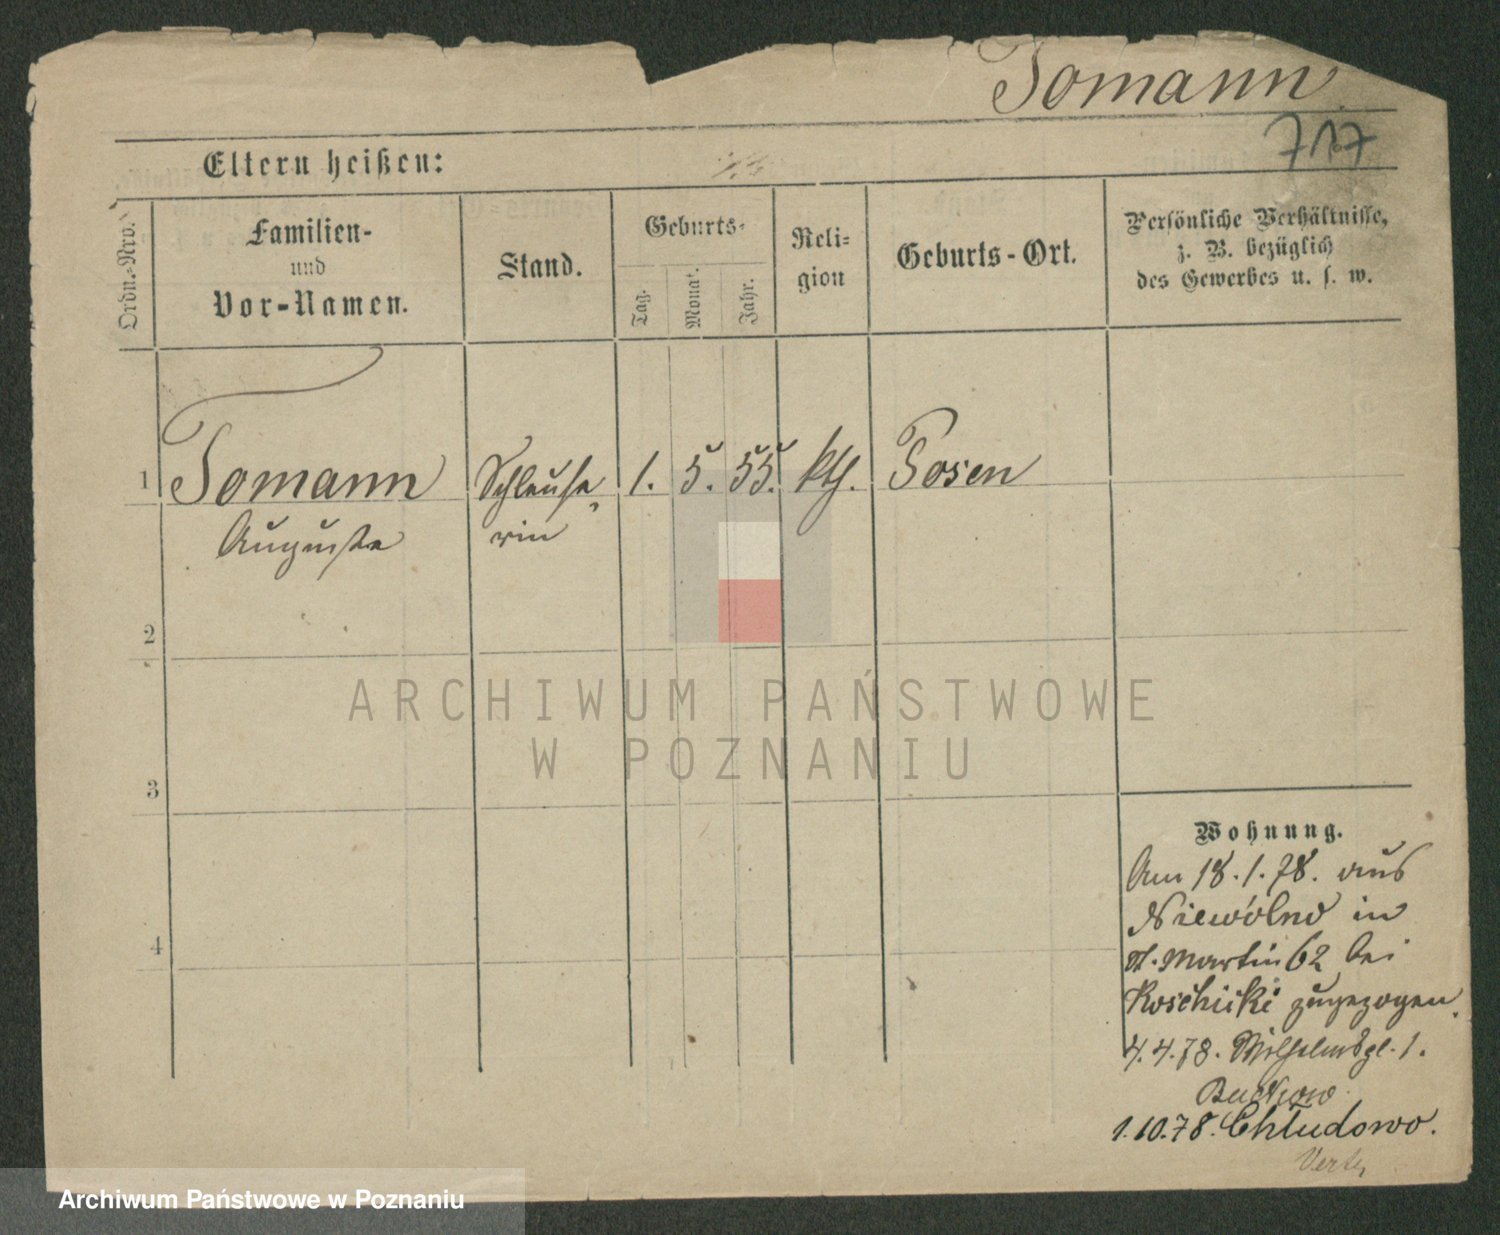 Tomann
717
Eltern heißen:
Ordn.-Nro.
Familien-
und
Vor-Namen.
Stand.
Geburts-
Tag.
Monat.
Jahr.
Reli-
gion
Geburts-Ort.
Persönliche Verhältnisse,
z. B. bezüglich
des Gewerbes u. s. w.
1 Tomann 1. 5. 55. kth. Posen
Auguste
2
3
4
ARCHIWUM PAŃSTWOWE
W POZNANIU
Wohnung.
Am 18.1.78. aus
in
St. Martin 62 bei
zugezogen.
4.4.78. Wilhelmspl. 1.
1.10.78. Chludowo.
Archiwum Państwowe w Poznaniu